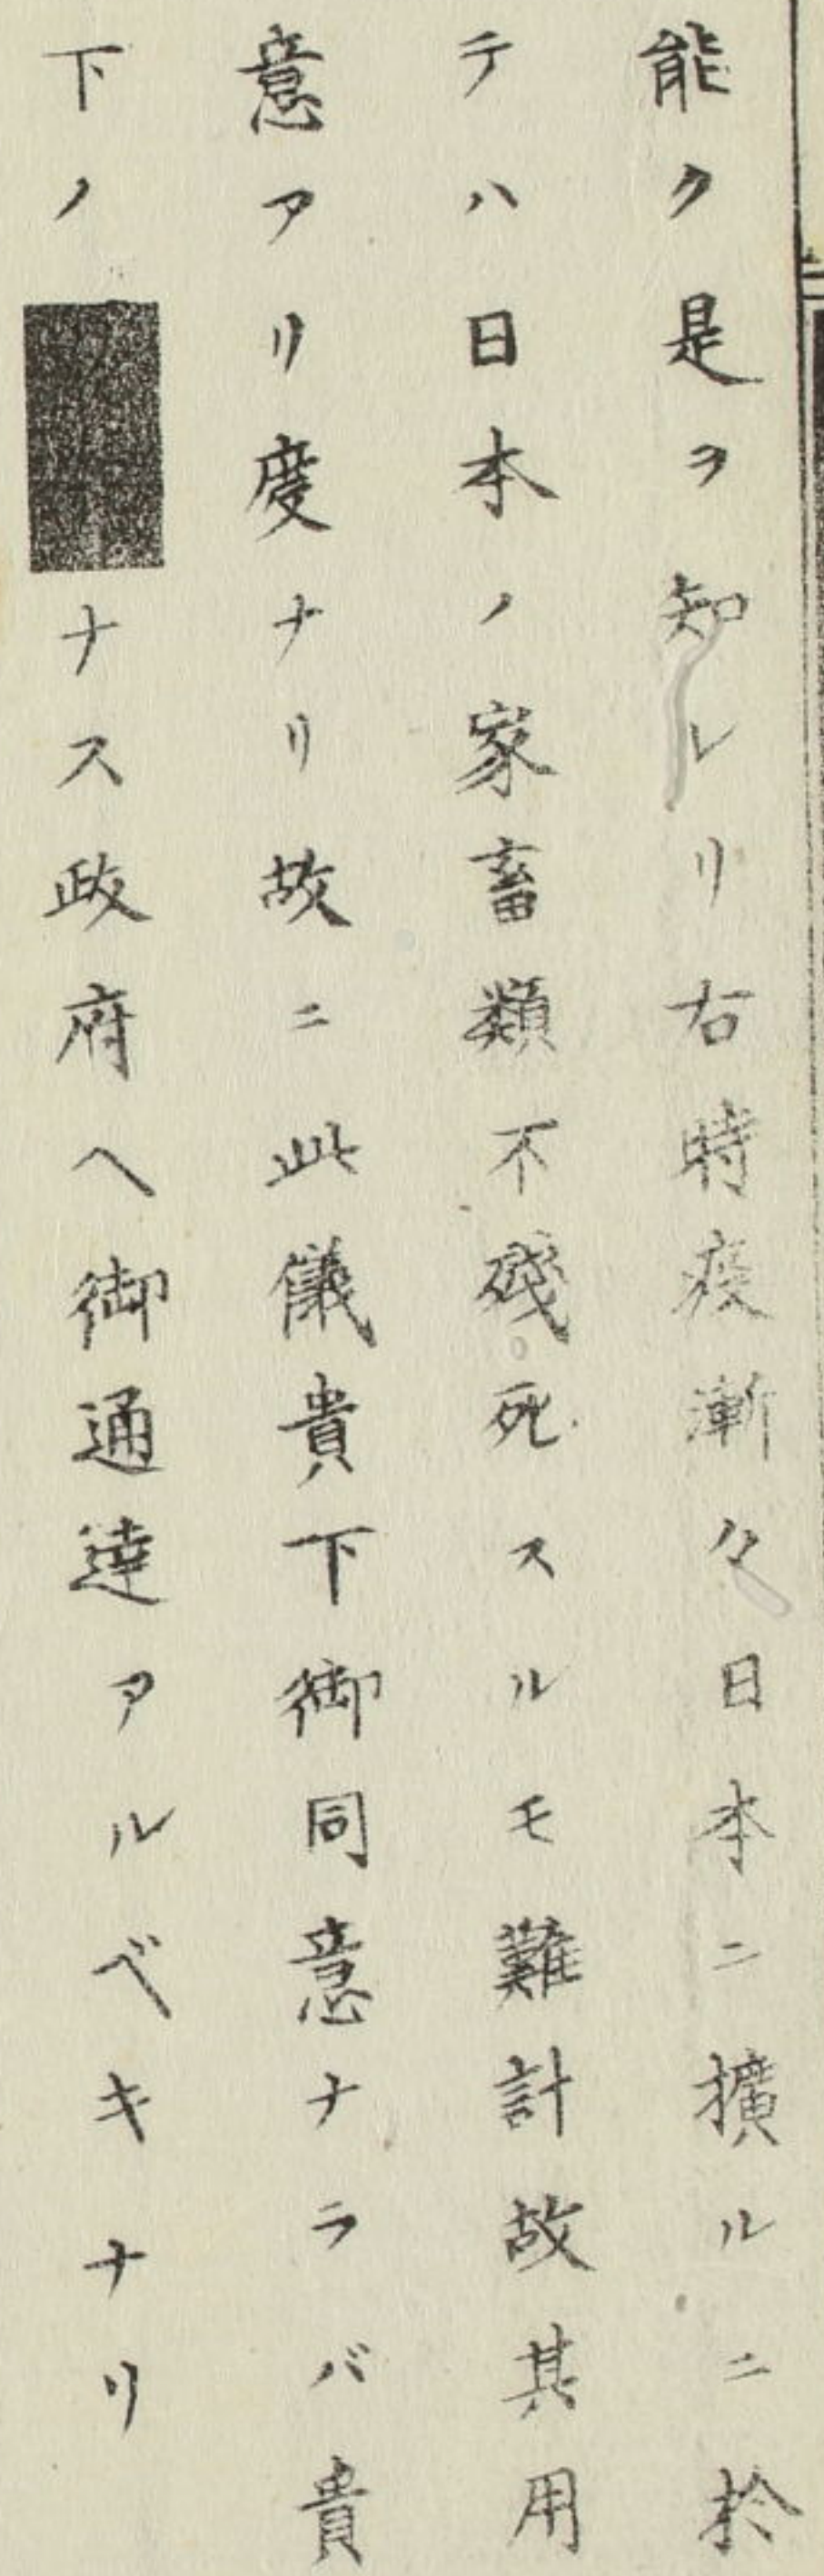 能ク是ヲ知レリ右時疫漸々日本ニ擴ルニ於
テハ日本ノ家畜類不殘死スルモ難計故其用
意アリ度ナリ故ニ此儀貴下御同意ナラバ貴
下ノナス政府ヘ御通達アルベキナリ